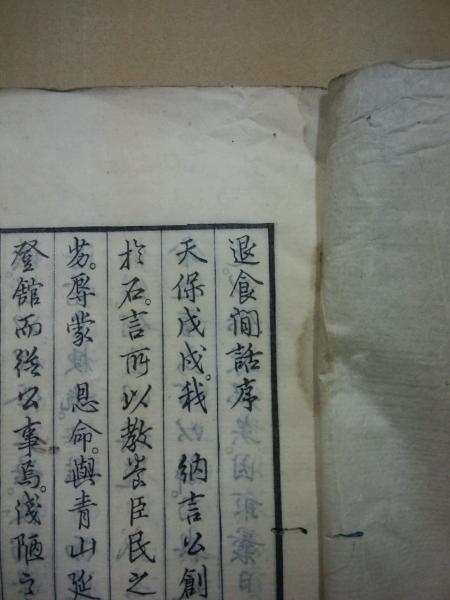 退食間話序
天保戊戌。我 納言公創
於石。言所以教臣民之
劣。辱蒙 恩命。與青山延
登館而從公事焉。淺陋之